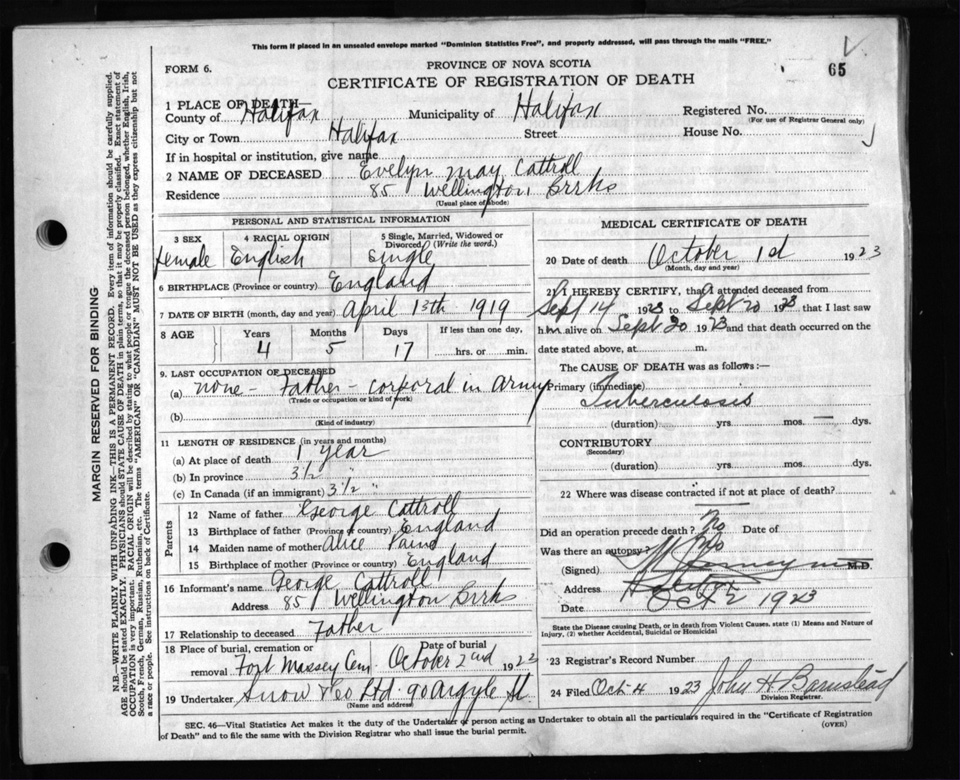 This form if placed in an unsealed envelope marked "Dominion Statistics Free", and properly addressed, will pass through the mails "FREE."
FORM 6.
PROVINCE OF NOVA SCOTIA
65
CERTIFICATE OF REGISTRATION OF DEATH
1 PLACE OF DEATH—
County of Halifax Municipality of Halifax Registered No.
(For use of Registrar General only)
City or Town Halifax Street House No.
If in hospital or institution, give name
2 NAME OF DECEASED Evelyn May Cattroll
Residence 85 Wellington Brrks
(Usual place of abode)
PERSONAL AND STATISTICAL INFORMATION
3 SEX 4 RACIAL ORIGIN 5 Single, Married, Widowed or Divorced (Write the word.)
Female English Single
6 BIRTHPLACE (Province or country) England
7 DATE OF BIRTH (month, day and year) April 13th 1919
8 AGE Years Months Days If less than one day,
4 5 17 hrs. or min.
9. LAST OCCUPATION OF DECEASED
(a) none - Father - corporal in Army
(Trade or occupation or kind of work)
(b)
(Kind of industry)
11 LENGTH OF RESIDENCE (in years and months)
(a) At place of death 1 year
(b) In province 3½ "
(c) In Canada (if an immigrant) 3½ "
Parents
12 Name of father George Cattroll
13 Birthplace of father (Province or country) England
14 Maiden name of mother Alice Paine
15 Birthplace of mother (Province or country) England
16 Informant's name George Cattroll
Address 85 Wellington Brrks
17 Relationship to deceased Father
18 Place of burial, cremation or removal Date of burial
Fort Massey Cem October 2nd 1923
19 Undertaker Snow & Co Ltd 90 Argyle St
(Name and address)
MEDICAL CERTIFICATE OF DEATH
20 Date of death October 1st 1923
(Month, day and year)
21 I HEREBY CERTIFY, that I attended deceased from
Sept 14 1923 to Sept 20 1923 that I last saw
h.m. alive on Sept 20 1923 and that death occurred on the
date stated above, at m.
The CAUSE OF DEATH was as follows:—
Primary (immediate)
Tuberculosis
(duration) yrs. mos. — dys.
CONTRIBUTORY
(Secondary)
(duration) yrs. mos. dys.
22 Where was disease contracted if not at place of death?
Did an operation precede death? No Date of
Was there an autopsy? No
(Signed) M.D.
Address Halifax
Date Oct 2 1923
State the Disease causing Death, or in death from Violent Causes, state (1) Means and Nature of
Injury, (2) whether Accidental, Suicidal or Homicidal
23 Registrar's Record Number
24 Filed Oct 4 1923 John H Barnstead
Division Registrar.
SEC. 46—Vital Statistics Act makes it the duty of the Undertaker or person acting as Undertaker to obtain all the particulars required in the "Certificate of Registration
of Death" and to file the same with the Division Registrar who shall issue the burial permit.
(OVER)
MARGIN RESERVED FOR BINDING
N.B.—WRITE PLAINLY WITH UNFADING INK—THIS IS A PERMANENT RECORD. Every item of information should be carefully supplied.
AGE should be stated EXACTLY. PHYSICIANS should STATE CAUSE OF DEATH in plain terms, so that it may be properly classified. Exact statement of
OCCUPATION is very important. RACIAL ORIGIN will be described by stating to what people or tongue the deceased person belonged, whether English, Irish,
Scotch, French, German, Russian, Ruthenian, etc. The terms "AMERICAN" OR "CANADIAN" MUST NOT BE USED as they express citizenship but not
a race or people. See instructions on back of Certificate.